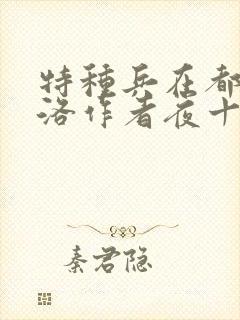 特種兵在都
洛作者夜十
秦君隐